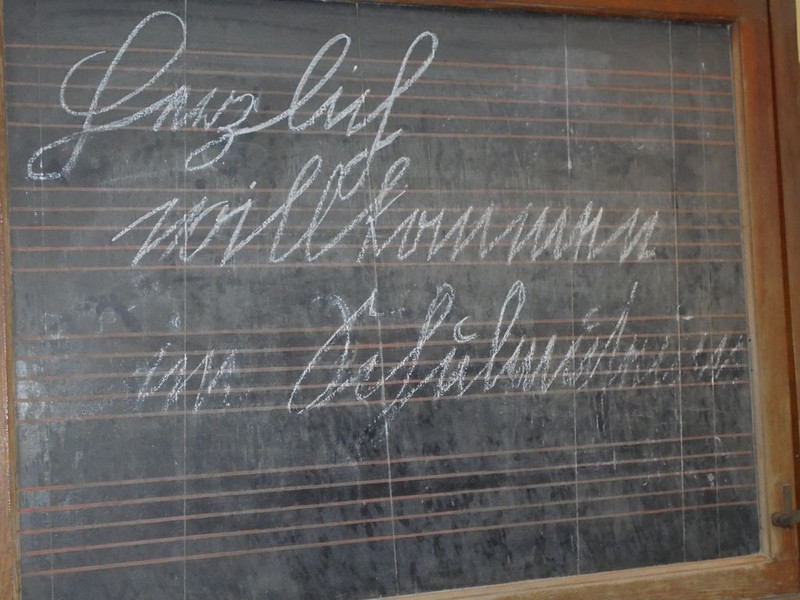 Herzlich
willkommen
im Schulmuseum